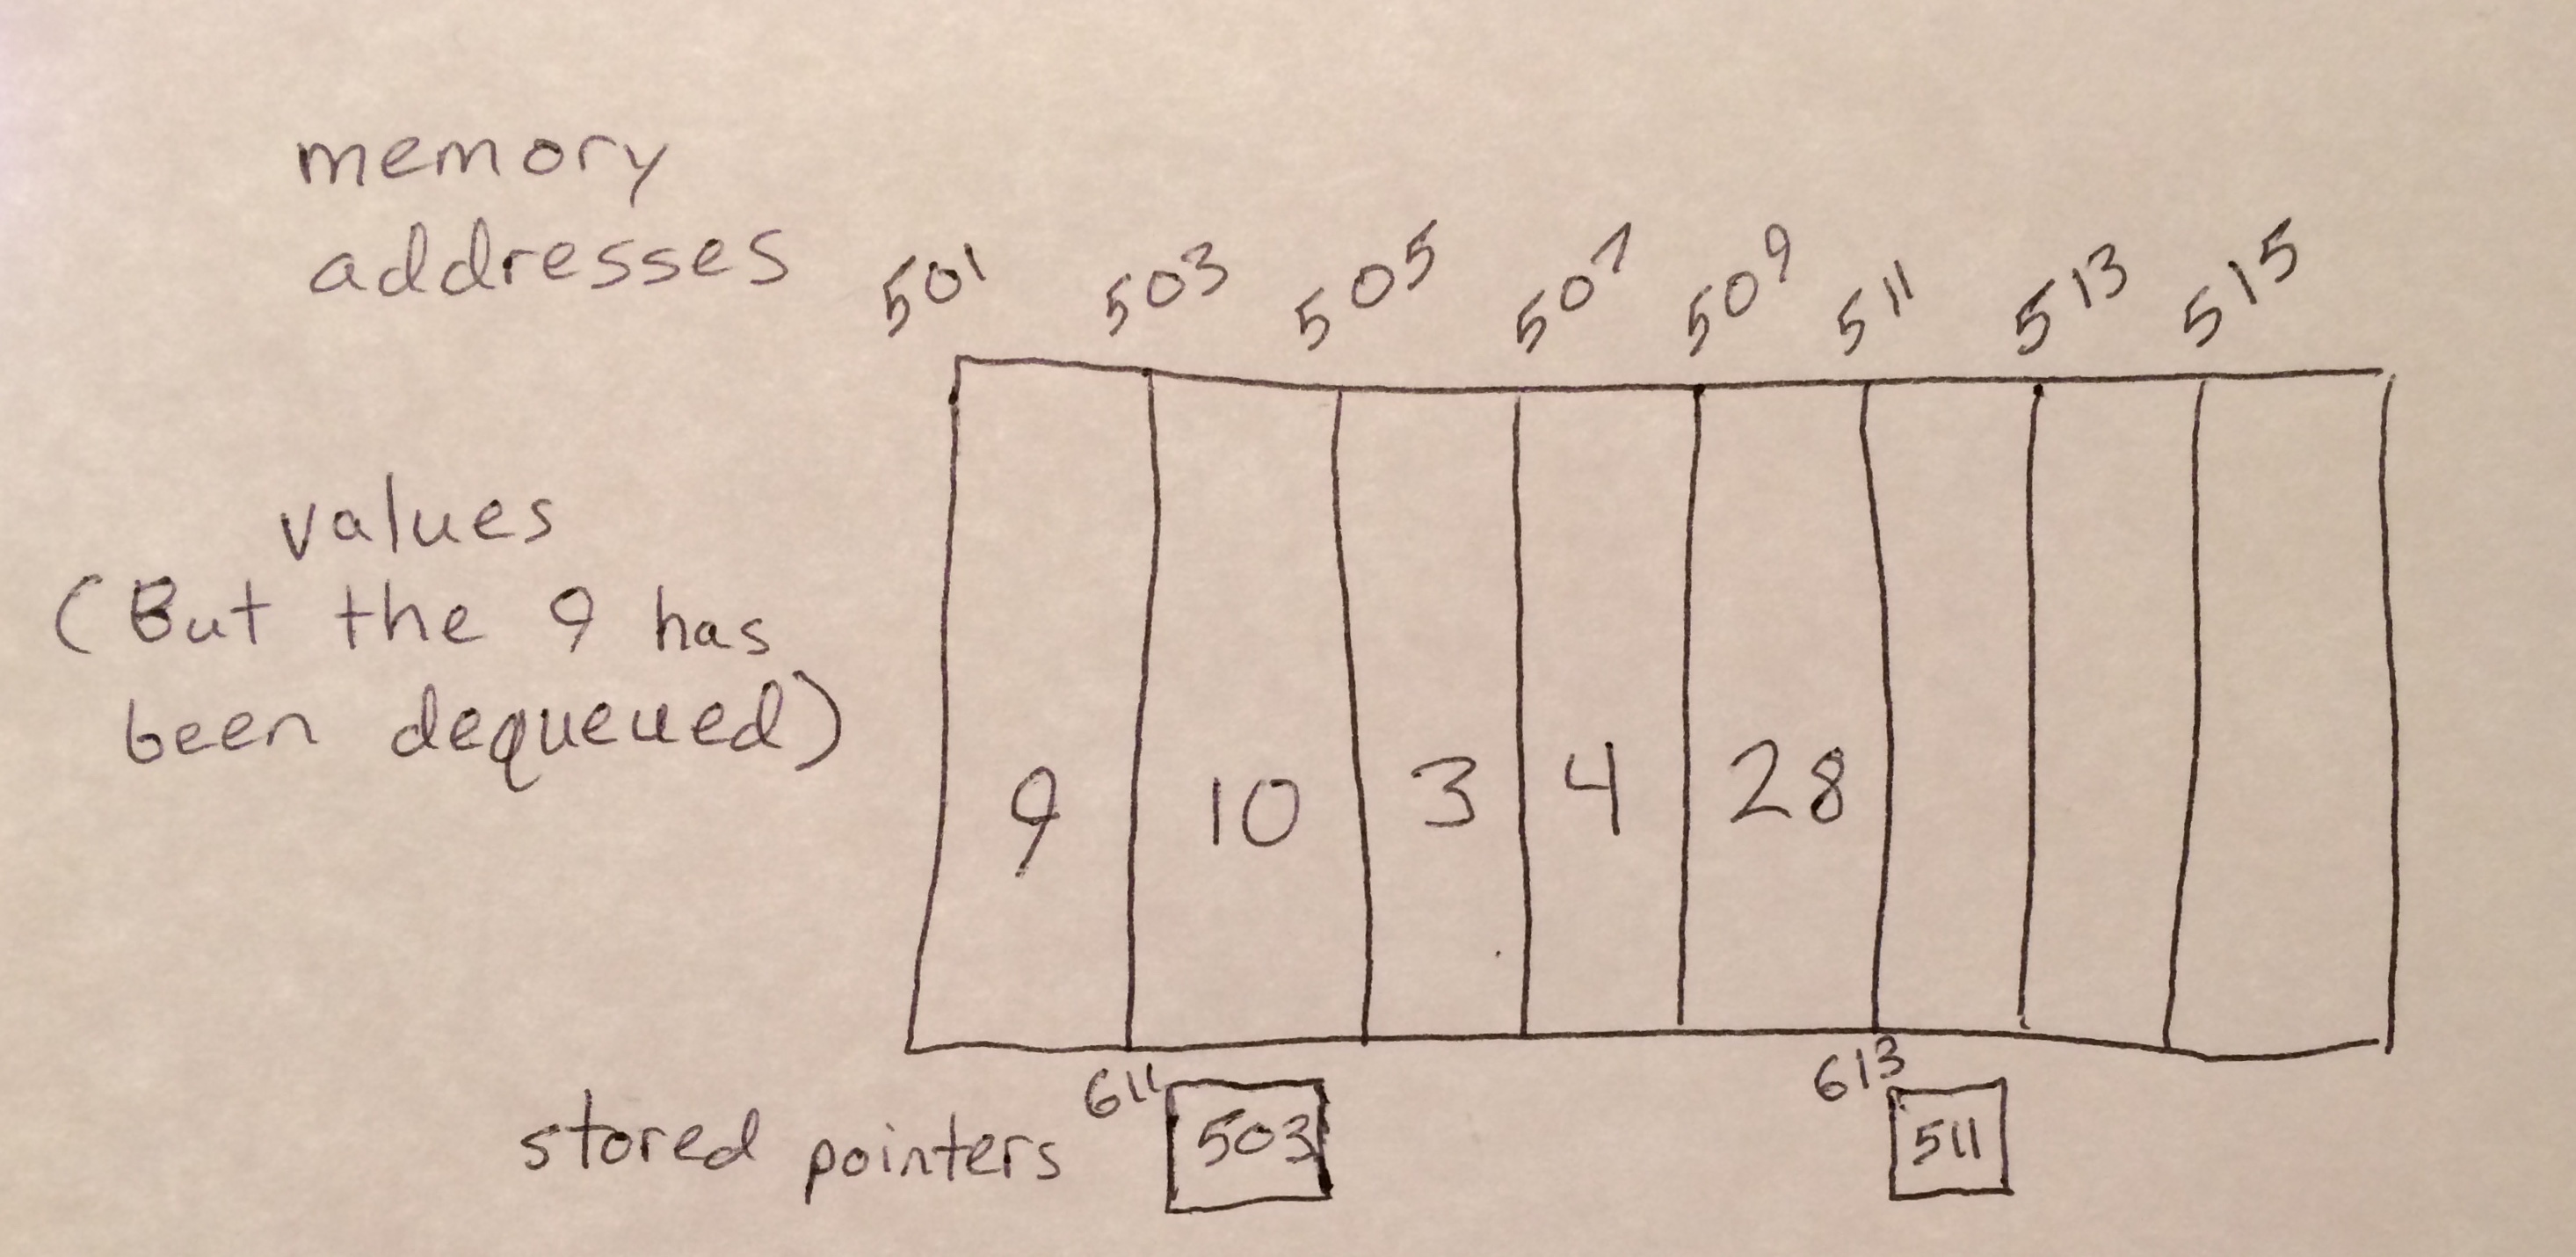 memory
addresses
501 503 505 507 509 511 513 515
values
(But the 9 has
been dequeued)
9 10 3 4 28
611 613
stored pointers 503 511